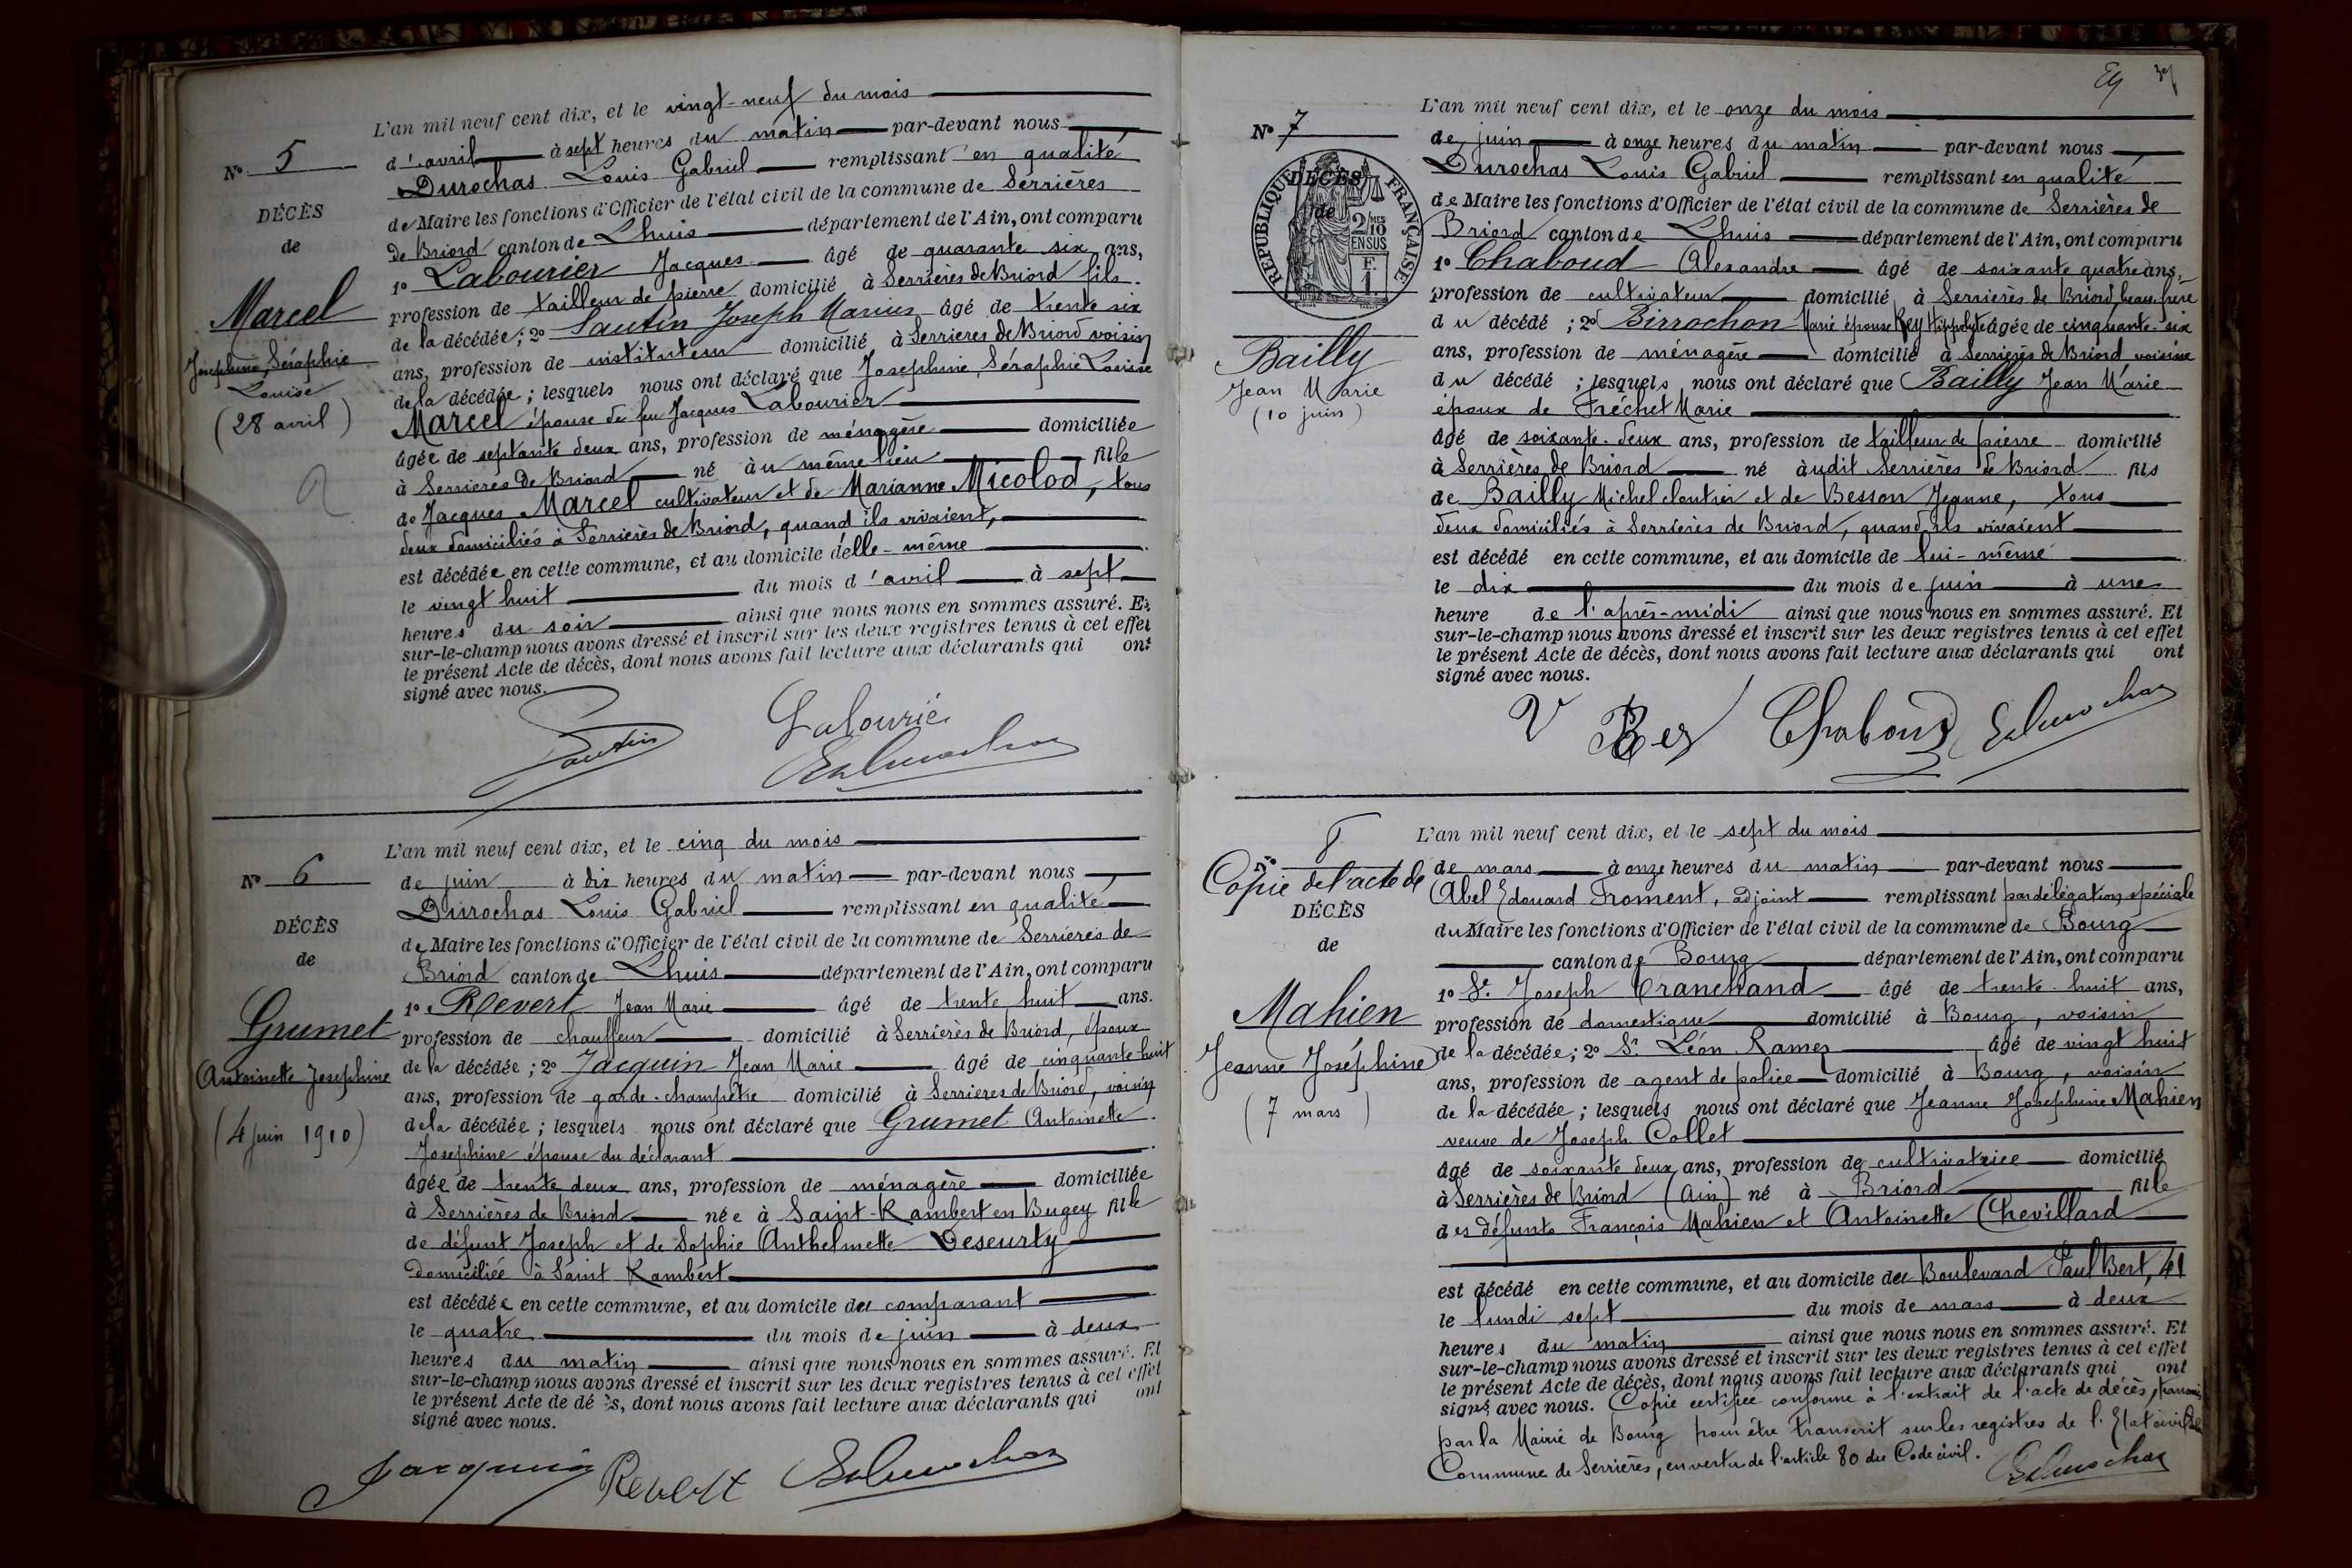 L'an mil neuf cent dix, et le vingt-neuf du mois
d'avril à sept heures du matin par-devant nous
Durochas Louis Gabriel remplissant en qualité
de Maire les fonctions d'Officier de l'état civil de la commune de Serrières
de Briord canton de Lhuis département de l'Ain, ont comparu
1º Labourier Jacques âgé de quarante six ans,
profession de tailleur de pierre domicilié à Serrières de Briord fils
de la décédée; 2º Sautin Joseph Marius âgé de trente six
ans, profession de instituteur domicilié à Serrieres de Briord voisin
de la décédée; lesquels nous ont déclaré que Josephine, Séraphie Louise
Marcel épouse de feu Jacques Labourier
âgée de septante deux ans, profession de ménagère domiciliée
à Serrières de Briord né àu même lieu fille
de Jacques Marcel cultivateur et de Marianne Micolod, tous
deux domiciliés à Serrières de Briord, quand ils vivaient,
est décédée en cette commune, et au domicile d'elle-même
le vingt huit du mois d'avril à sept
heures du soir ainsi que nous nous en sommes assuré. Et
sur-le-champ nous avons dressé et inscrit sur les deux registres tenus à cet effet
le présent Acte de décès, dont nous avons fait lecture aux déclarants qui ont
signé avec nous.
Nº 5
DÉCÈS
de
Marcel
Josephine, Séraphie
Louise
(28 avril)
Sautin Labourier
Durochas
L'an mil neuf cent dix, et le cinq du mois
de juin à dix heures du matin par-devant nous
Durochas Louis Gabriel remplissant en qualité
de Maire les fonctions d'Officier de l'état civil de la commune de Serrières de
Briord canton de Lhuis département de l'Ain, ont comparu
1º Revert Jean Marie âgé de trente huit ans.
profession de chauffeur domicilié à Serrières de Briord, époux
de la décédée; 2º Jacquin Jean Marie âgé de cinquante huit
ans, profession de garde-champêtre domicilié à Serrieres de Briord, voisin
de la décédée; lesquels nous ont déclaré que Grumet Antoinette
Josephine épouse du déclarant
âgée de trente deux ans, profession de ménagère domiciliée
à Serrières de Briord née à Saint-Rambert en Bugey fille
de défunt Joseph et de Sophie Anthelmette Deseurty
domiciliée à Saint Rambert
est décédée en cette commune, et au domicile du comparant
le quatre du mois de juin à deux
heures du matin ainsi que nous nous en sommes assuré. Et
sur-le-champ nous avons dressé et inscrit sur les deux registres tenus à cet effet
le présent Acte de décès, dont nous avons fait lecture aux déclarants qui ont
signé avec nous.
Nº 6
DÉCÈS
de
Grumet
Antoinette Josephine
(4 juin 1910)
Jacquin Revert Durochas
L'an mil neuf cent dix, et le onze du mois
de juin à onze heures du matin par-devant nous
Durochas Louis Gabriel remplissant en qualité
de Maire les fonctions d'Officier de l'état civil de la commune de Serrières de
Briord canton de Lhuis département de l'Ain, ont comparu
1º Chaboud Alexandre âgé de soixante quatre ans,
profession de cultivateur domicilié à Serrières de Briord, beau-frère
du décédé; 2º Birrochon Marie épouse Rey Hippolyte âgée de cinquante-six
ans, profession de ménagère domicilié à Serrières de Briord voisine
du décédé; lesquels nous ont déclaré que Bailly Jean Marie
époux de Fréchet Marie
âgé de soixante-deux ans, profession de tailleur de pierre domicilié
à Serrières de Briord né àudit Serrières de Briord fils
de Bailly Michel cloutier et de Besson Jeanne, tous
deux domiciliés à Serrières de Briord, quand ils vivaient
est décédé en cette commune, et au domicile de lui-même
le dix du mois de juin à une
heure de l'après-midi ainsi que nous nous en sommes assuré. Et
sur-le-champ nous avons dressé et inscrit sur les deux registres tenus à cet effet
le présent Acte de décès, dont nous avons fait lecture aux déclarants qui ont
signé avec nous.
Nº 7
DÉCÈS
de
RÉPUBLIQUE FRANÇAISE
2/10 MES
EN SUS
F.
1.
Bailly
Jean Marie
(10 juin)
V Rey Chaboud Durochas
L'an mil neuf cent dix, et le sept du mois
de mars à onze heures du matin par-devant nous
Abel Edouard Froment, adjoint remplissant par délégation spéciale
du Maire les fonctions d'Officier de l'état civil de la commune de Bourg
canton de Bourg département de l'Ain, ont comparu
1º Sr. Joseph Tranchand âgé de trente-huit ans,
profession de domestique domicilié à Bourg, voisin
de la décédée; 2º Sr. Léon Ramey âgé de vingt huit
ans, profession de agent de police domicilié à Bourg, voisin
de la décédée; lesquels nous ont déclaré que Jeanne Josephine Mahien
veuve de Joseph Collet
âgé de soixante deux ans, profession de cultivatrice domicilié
à Serrières de Briord (Ain) né à Briord fille
des défunts François Mahien et Antoinette Chevillard
est décédé en cette commune, et au domicile du Boulevard Paul Bert, 41
le lundi sept du mois de mars à deux
heures du matin ainsi que nous nous en sommes assuré. Et
sur-le-champ nous avons dressé et inscrit sur les deux registres tenus à cet effet
le présent Acte de décès, dont nous avons fait lecture aux déclarants qui ont
signé avec nous. Copie certifiée conforme à l'extrait de l'acte de décès, transmis
par la Mairie de Bourg pour être transcrit sur les registres de l'Etat civil de
Commune de Serrières, en vertu de l'article 80 du Code civil.
Durochas
Nº 8
Copie de l'acte de
DÉCÈS
de
Mahien
Jeanne Joséphine
(7 mars)